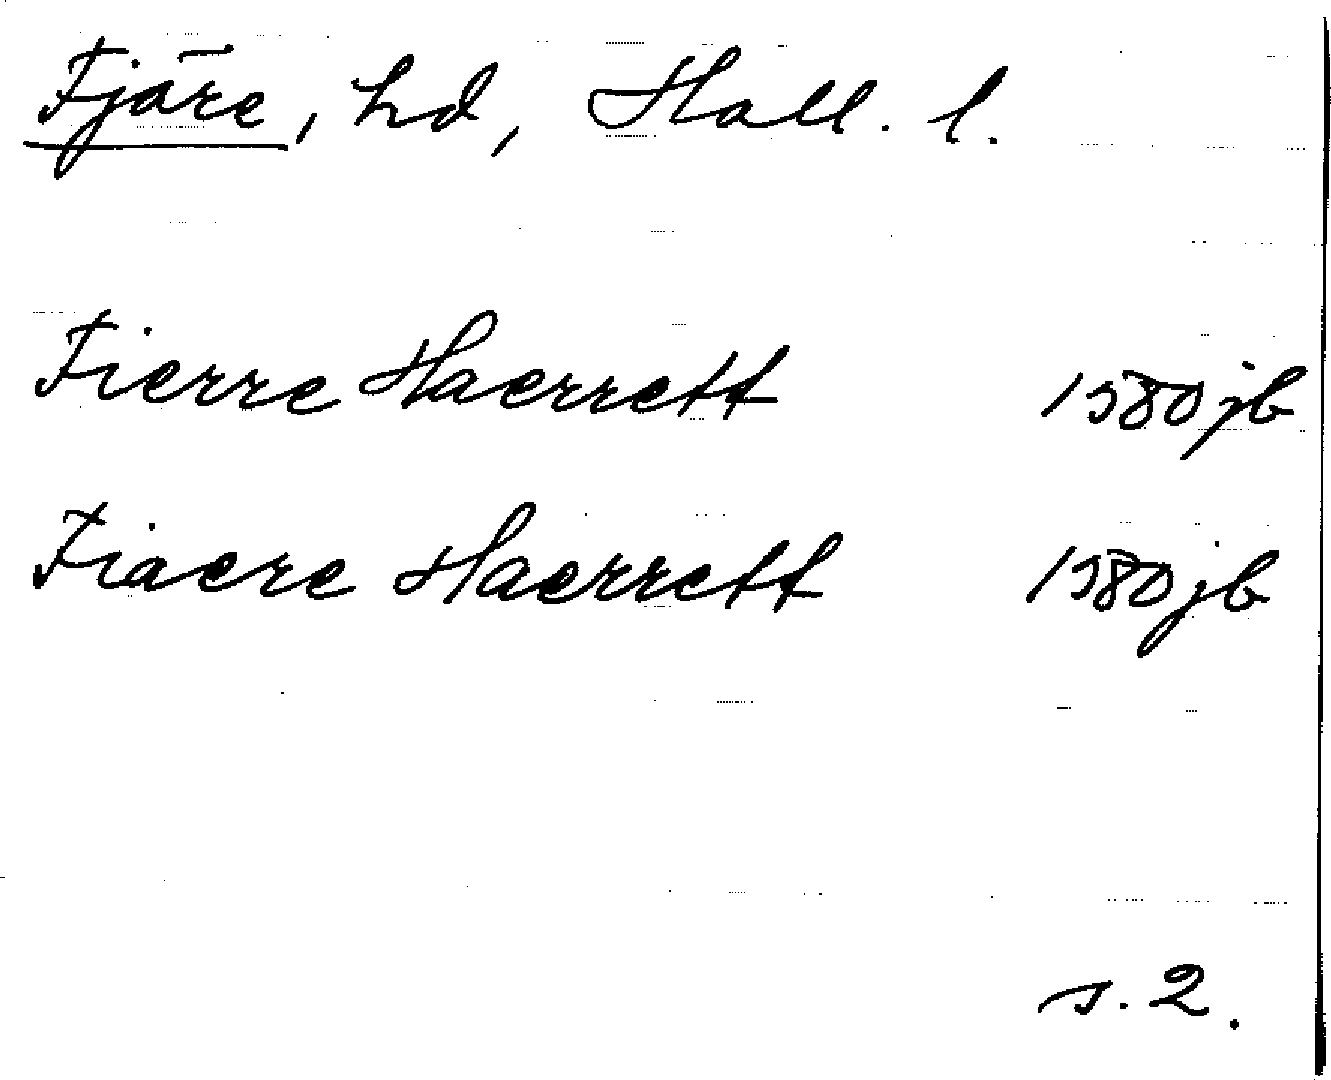 Fjäre, hd, Hall. l.
Fierre Haerrett 1580 jb
Fiaere Haerrett 1580 jb
s. 2.